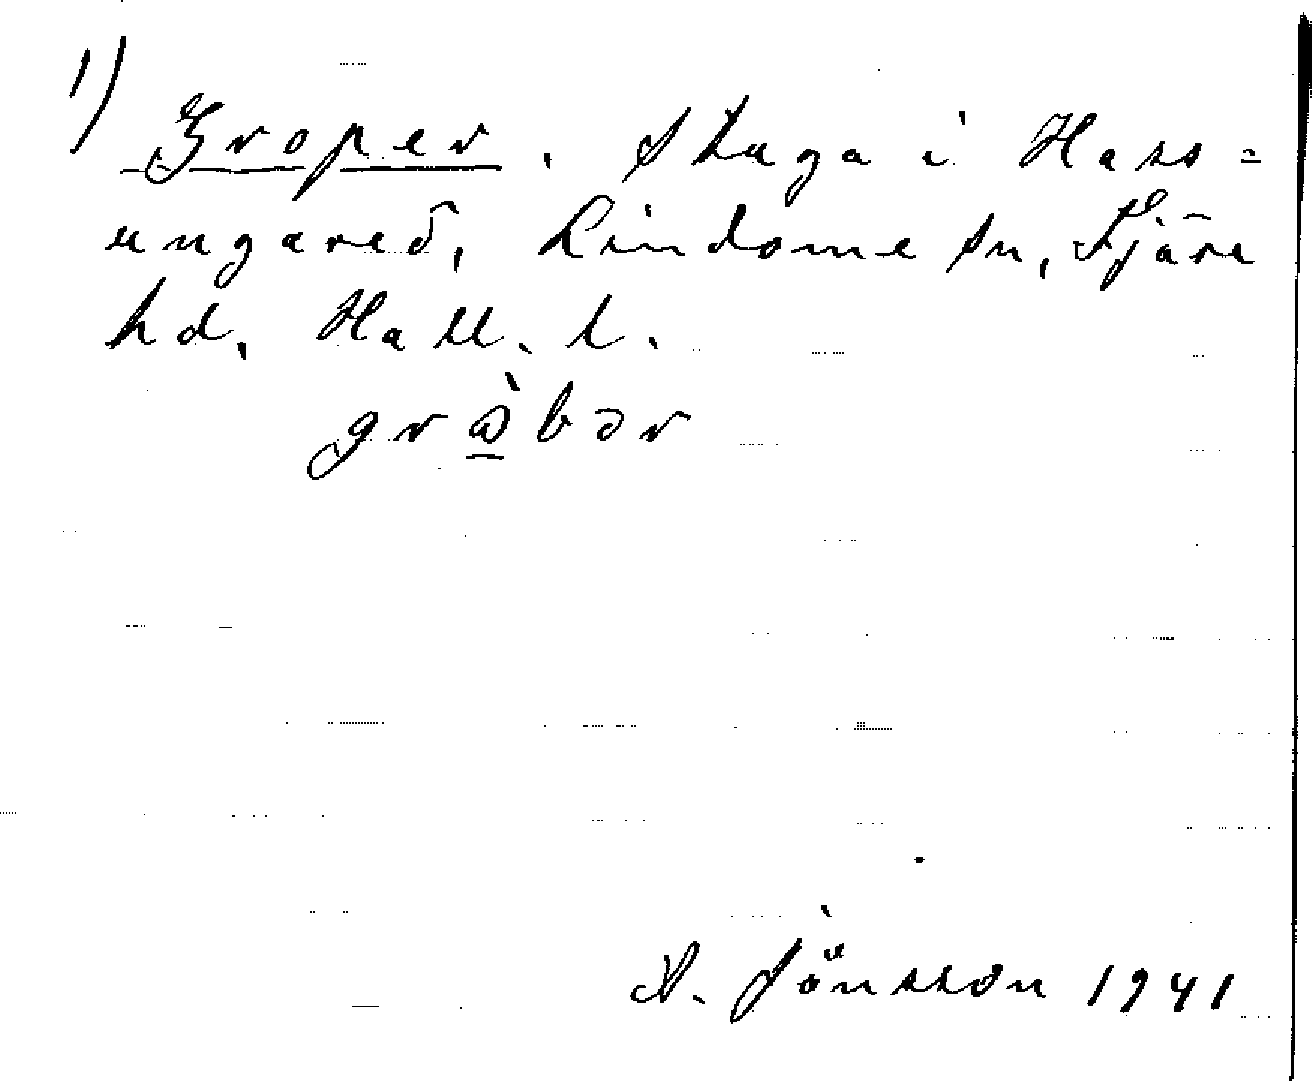 1)
Groper. Stuga i Hass=
ungared, Lindome sn, Fjäre
hd, Hall. l.
grɷ̀bər
A. Jönsson 1941